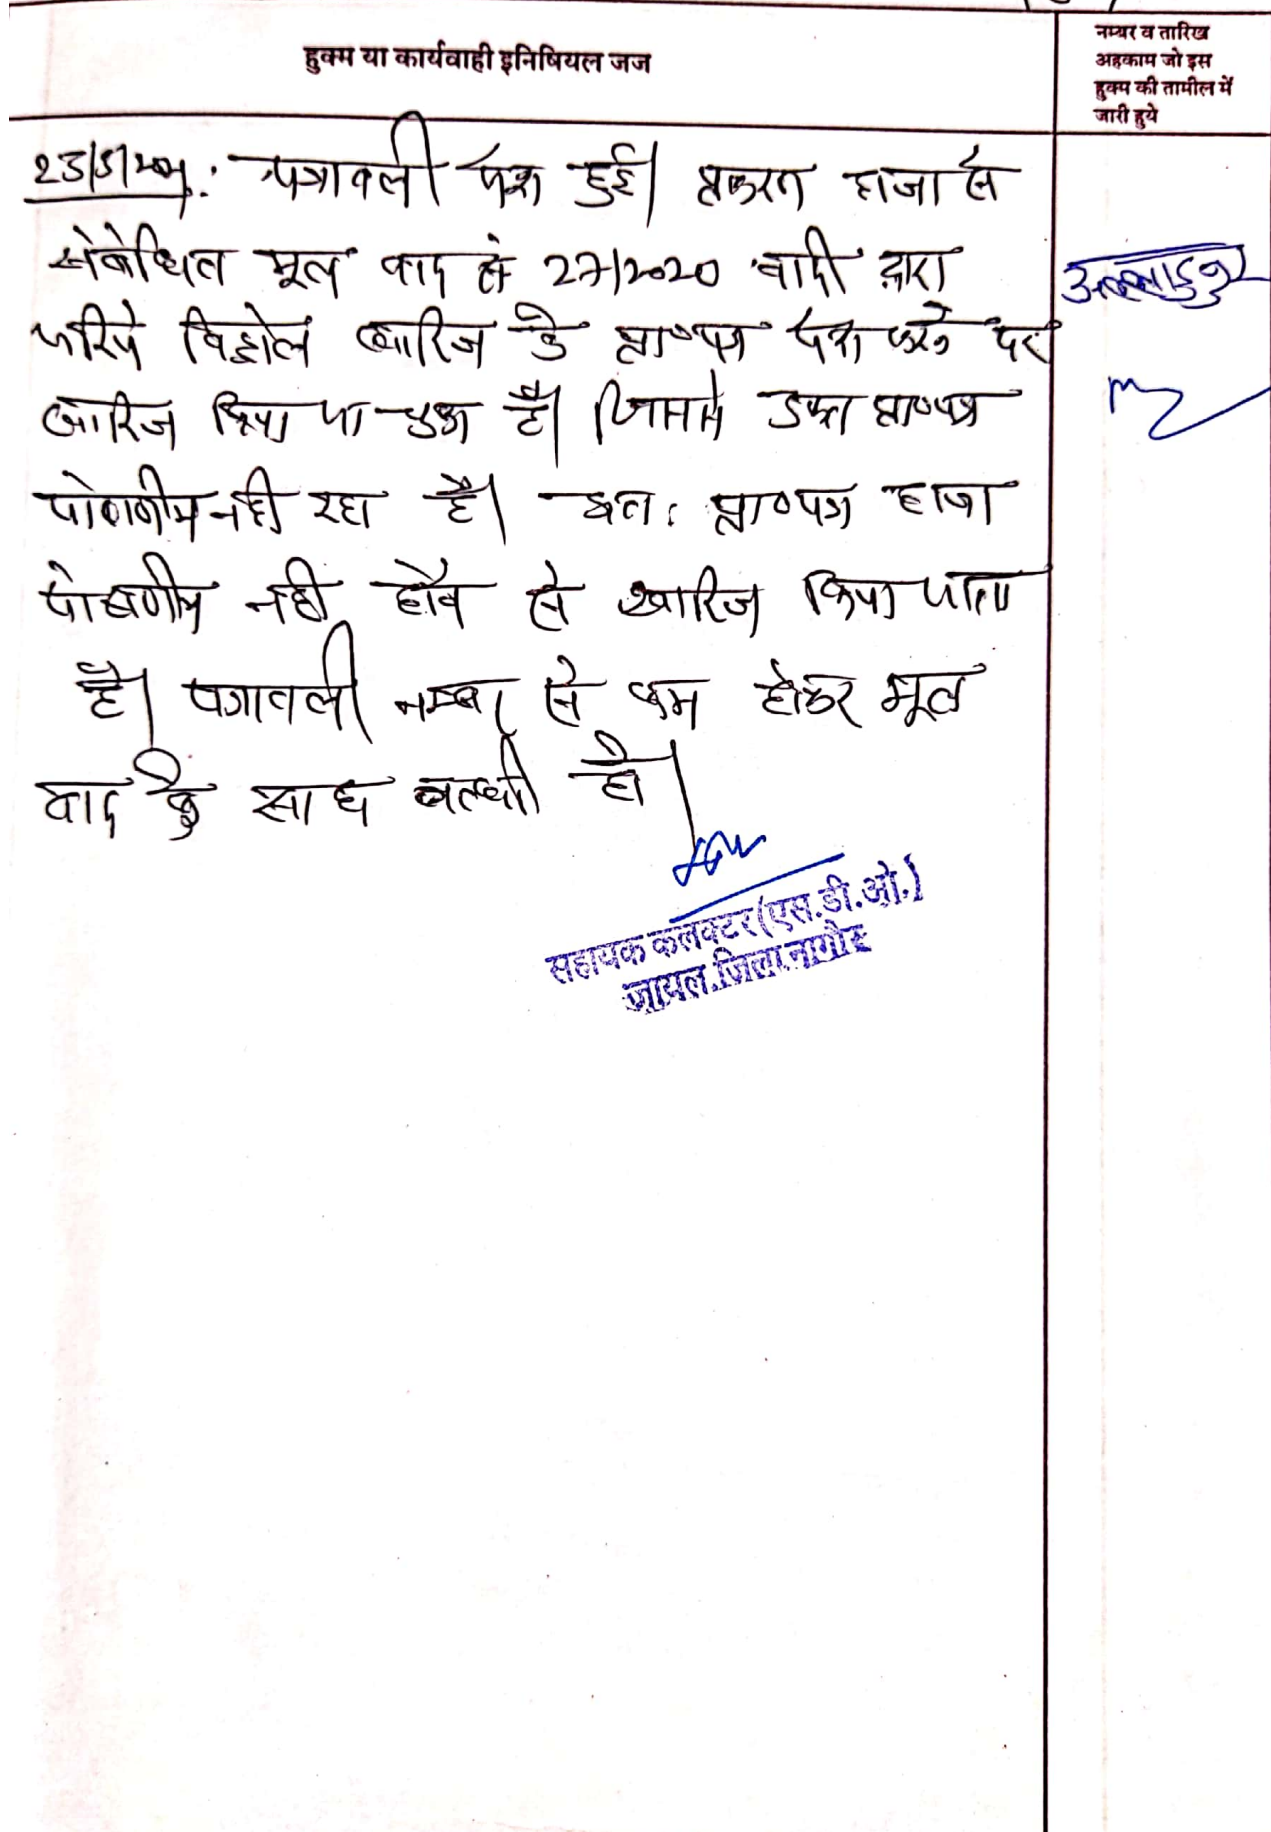 हुक्म या कार्यवाही इनिषियल जज
नम्बर व तारिख
अहकाम जो इस
हुक्म की तामील में
जारी हुये
पत्रावली पेश हुई। प्रकरण हाजा से
संबंधित मूल वाद सं 27/2020 वादी द्वारा
जरिये विड्रोल खारिज के प्रा०पत्र पेश करने पर
खारिज किया जा चुका है। जिससे उक्त प्रा०पत्र
पोषणीय नहीं रहा है। अतः प्रा०पत्र हाजा
पोषणीय नही होने से खारिज किया जाता
है। पत्रावली नम्बर से कम होकर मूल
वाद के साथ नत्थी हो।
सहायक कलक्टर (एस.डी.ओ.)
जायल, जिला नागौर